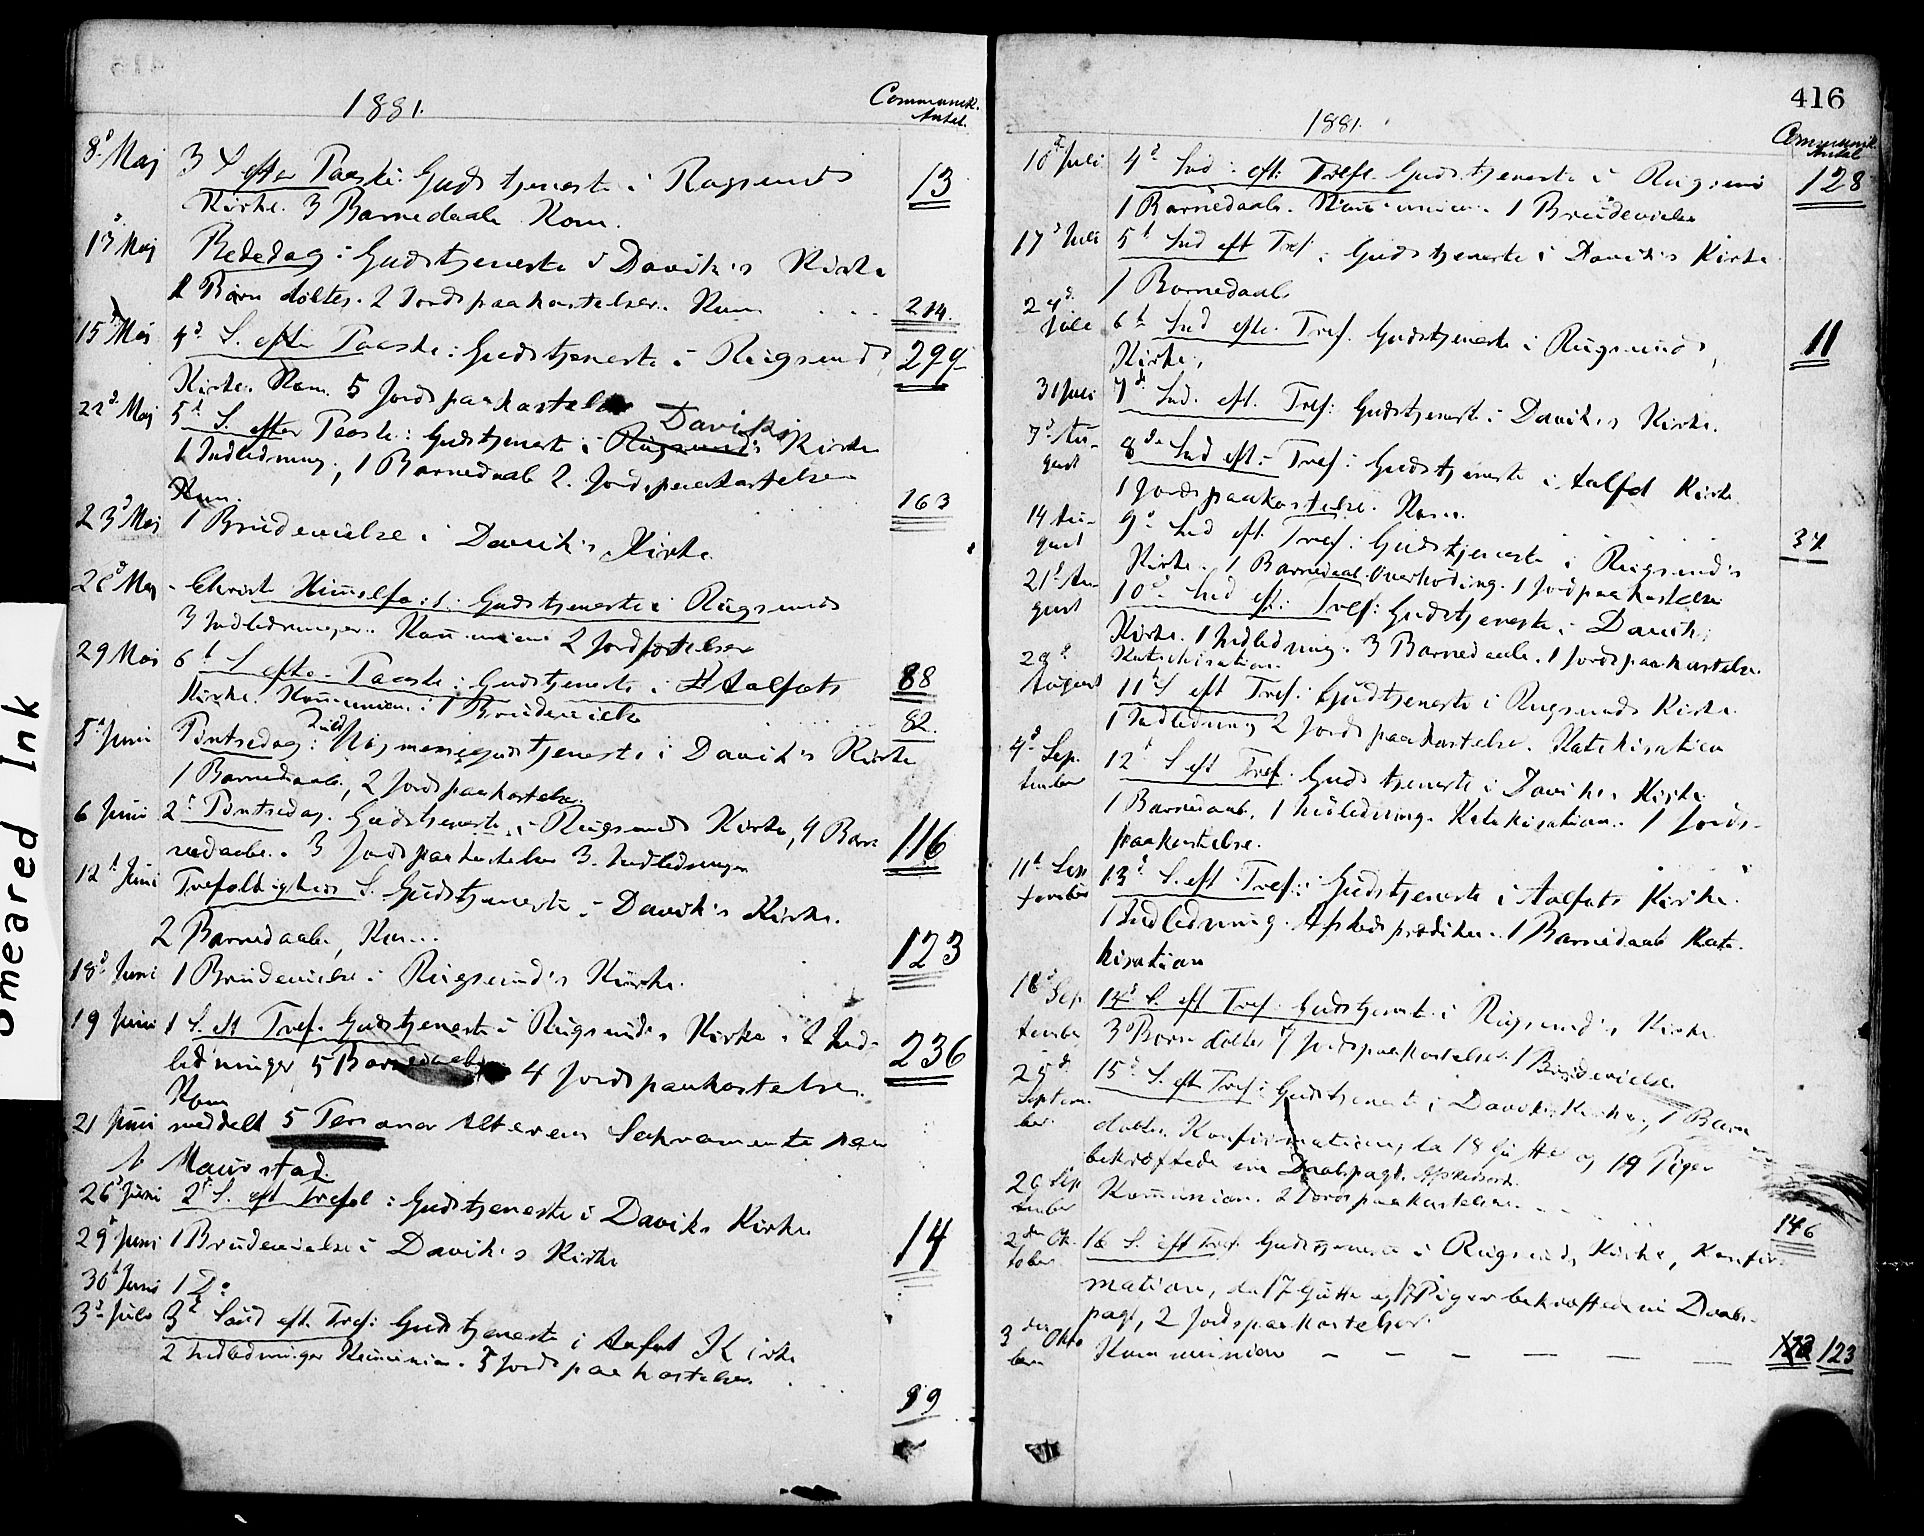 1881.
Communik. Antal.
8d Maj 3 S efter Paaske: Gudstjeneste i Rugsunds 13
Kirke. 3 Barnedaab Kom.
13d Maj Bededag: Gudstjeneste i Davik's Kirke
2 Børn døbtes. 2 Jordspaakastelser. Kom . . . 214.
15d Maj 4d S. efter Paaske: Gudstjeneste i Rugsunds 299
Kirke. Kom. 5 Jordspaakastelser
22d Maj 5t S. efter Paaske: Gudstjeneste i Rugsund's Daviks Kirke
1 Indledning, 1 Barnedaab 2. Jordspaakastelser
Kom. 163
23d Maj 1 Brudevielse i Davik's Kirke
Christi Himelfa:t: Gudstjeneste i Rugsunds
3 Indledninger. Kommunion 2 88
29 Maj 6t S efter Paaske: Gudstjeneste i Aalfots
Kirke. Kommunion: 1 Brudevielse 82.
5t Juni Pintsedag: Høimessegudstjeneste i Davik's Kirke
1 Barnedaab, 2 Jordspaakastelser
6 Juni 2d Pintsedag. Gudstjeneste i Rugsunds Kirke, 4 Barne 116
nedaab. 3 Jordspaakastelse 3. Indledninger
12t Juni Trefoldigheds S. Gudstjeneste i Davik's Kirke.
2 Barnedaab, Kom... 123
18d Juni 1 Brudevielse i Rugsund's Kirke.
19 Juni 1 S. eft Tref. Gudstjeneste i Rugsund's Kirke 2 Ind- 236
ledninger 5 Barnedaab 4 Jordspaakastelser.
Kom
21 Juni meddelt 5 Personer Alterens Sakramente paa
Maurstad.
26d Juni 2d S. eft Trefol: Gudstjeneste i Daviks Kirke 14
29d Juni 1 Brudevielse i Davik's Kirke
30t Juni 1 Do
3d Juli 3d Sønd eft. Tref: Gudstjeneste i Aalfot Kirke
2 Indledninger Kommunion. 5 Jordspaakastelser. . . 89
416
1881.
Communik. Antal
10d Juli 4d Snd: eft: Trefl. Gudstjeneste i Rugsund 128
1 Barnedaab. Kommunion. 1 Brudevielse
17d Juli 5t Snd eft Tref: Gudstjeneste i Davik's Kirke
1 Barnedaab
24d Juli 6t Snd efter. Tref. Gudstjeneste i Rugsunds 11
Kirke.
31 Juli 7d Snd. eft. Tref: Gudstjeneste i Davik's Kirke.
7d August 8de Snd eft: Tref: Gudstjeneste i Aalfot Kirke
1 Jordspaakastelse. Kom. . . . 34
14 August 9d Snd eft. Tref: Gudstjeneste i Rugsund's
Kirke. 1 Barnedaab. Overhøring. 1 Jordpaakastelse
21d August 10d Snd eft: Tref: Gudstjeneste i Davik's
Kirke. 1 Indledning. 3 Barnedaab. 1 Jordspaakastelse
Katechisation.
28d August 11t S eft Tref: Gudstjeneste i Rugsunds Kirke.
1 Indledning 2 Jordspaakastelse. Katekisation
4d September 12t S eft Tref. Gudstjeneste i Davik's Kirke
1 Barnedaab, 1 Indledning. Katekisation. 1 Jords-
paakastelse.
11t September 13d S. eft Tref: Gudstjeneste i Aalfots Kirke.
1 Indledning. Afskedspræken. 1 Barnedaab Kate-
kisation
18d September 14d S. eft Tref. Gudstjeneste i Rugsund's Kirke
3 Børn døbtes 7 Jordspaakastelser. 1 Brudevielse
25d September 15d S. eft Tref: Gudstjeneste i Davik's Kirke, 1 Barn
døbtes. Konfirmation, da 18 Gutter og 19 Piger
bekræftede sin Daabspagt.
September Kommunion. 2 Jordspaakastelser. . . . 146
2den Oktober 16 S. eft Tref. Gudstjeneste i Rugsunds Kirke, Konfir-
mation, da 17 Gutter og 17 Piger bekræftede sin Daabs-
pagt, 2 Jordspaakastelser.
3den Oktober Kommunion — — — — — — 123
Smeared Ink